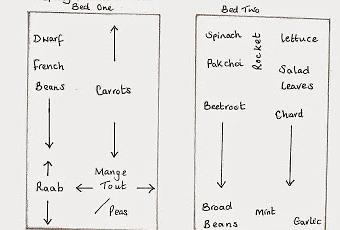 Bed One
Dwarf
French
Beans
Carrots
Raab
Mange
Tout
/Peas
Bed Two
Spinach
Rocket
Lettuce
Pakchoi
Salad
Leaves
Beetroot
Chard
Broad
Beans
Mint
Garlic